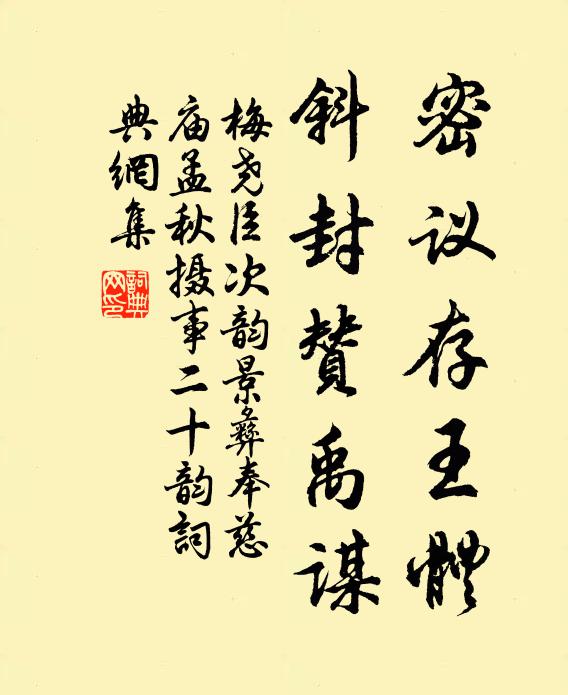 密议存王體
斜封賛禹謀
梅尧臣次韵景彝奉慈
庙孟秋摄事二十韵詞
典網集
詞典
网印